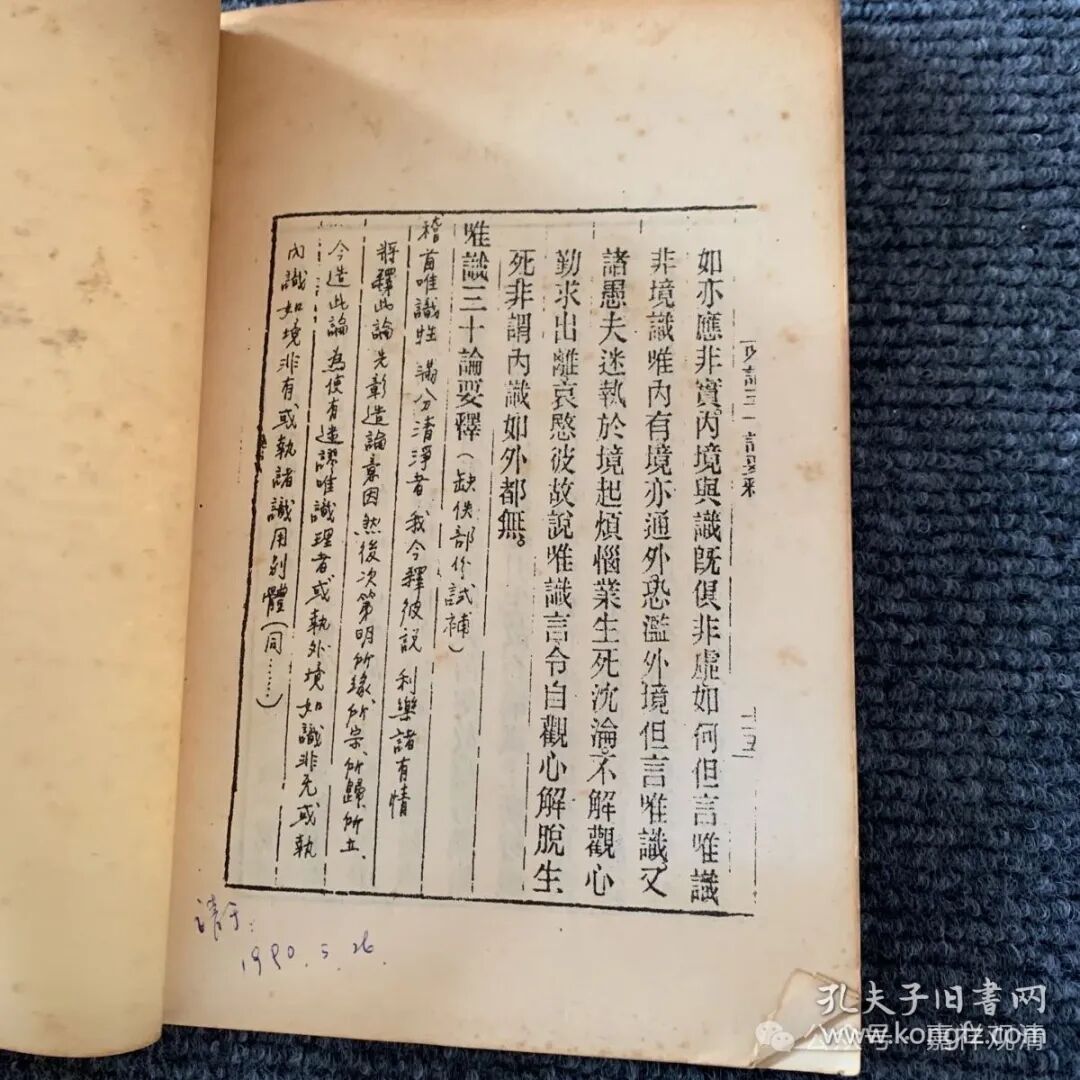 如亦應非實內境與識既俱非虛如何但言唯識
非境識唯內有境亦通外恐濫外境但言唯識又
諸愚夫迷執於境起煩惱業生死沈淪不解觀心
勤求出離哀愍彼故說唯識言令自觀心解脫生
死非謂內識如外都無
唯識三十論要釋(缺佚部份試補)
稽首唯識性 滿分清淨者 我今釋彼說 利樂諸有情
將釋此論先彰造論意因然後次第明所緣、所宗、所歸、所立、
今造此論為使有迷謬唯識理者或執外境如識非无或執
內識如境非有或執諸識用別體(同……)
十五
1990.5.26.
孔夫子旧书网
www.kongfz.com